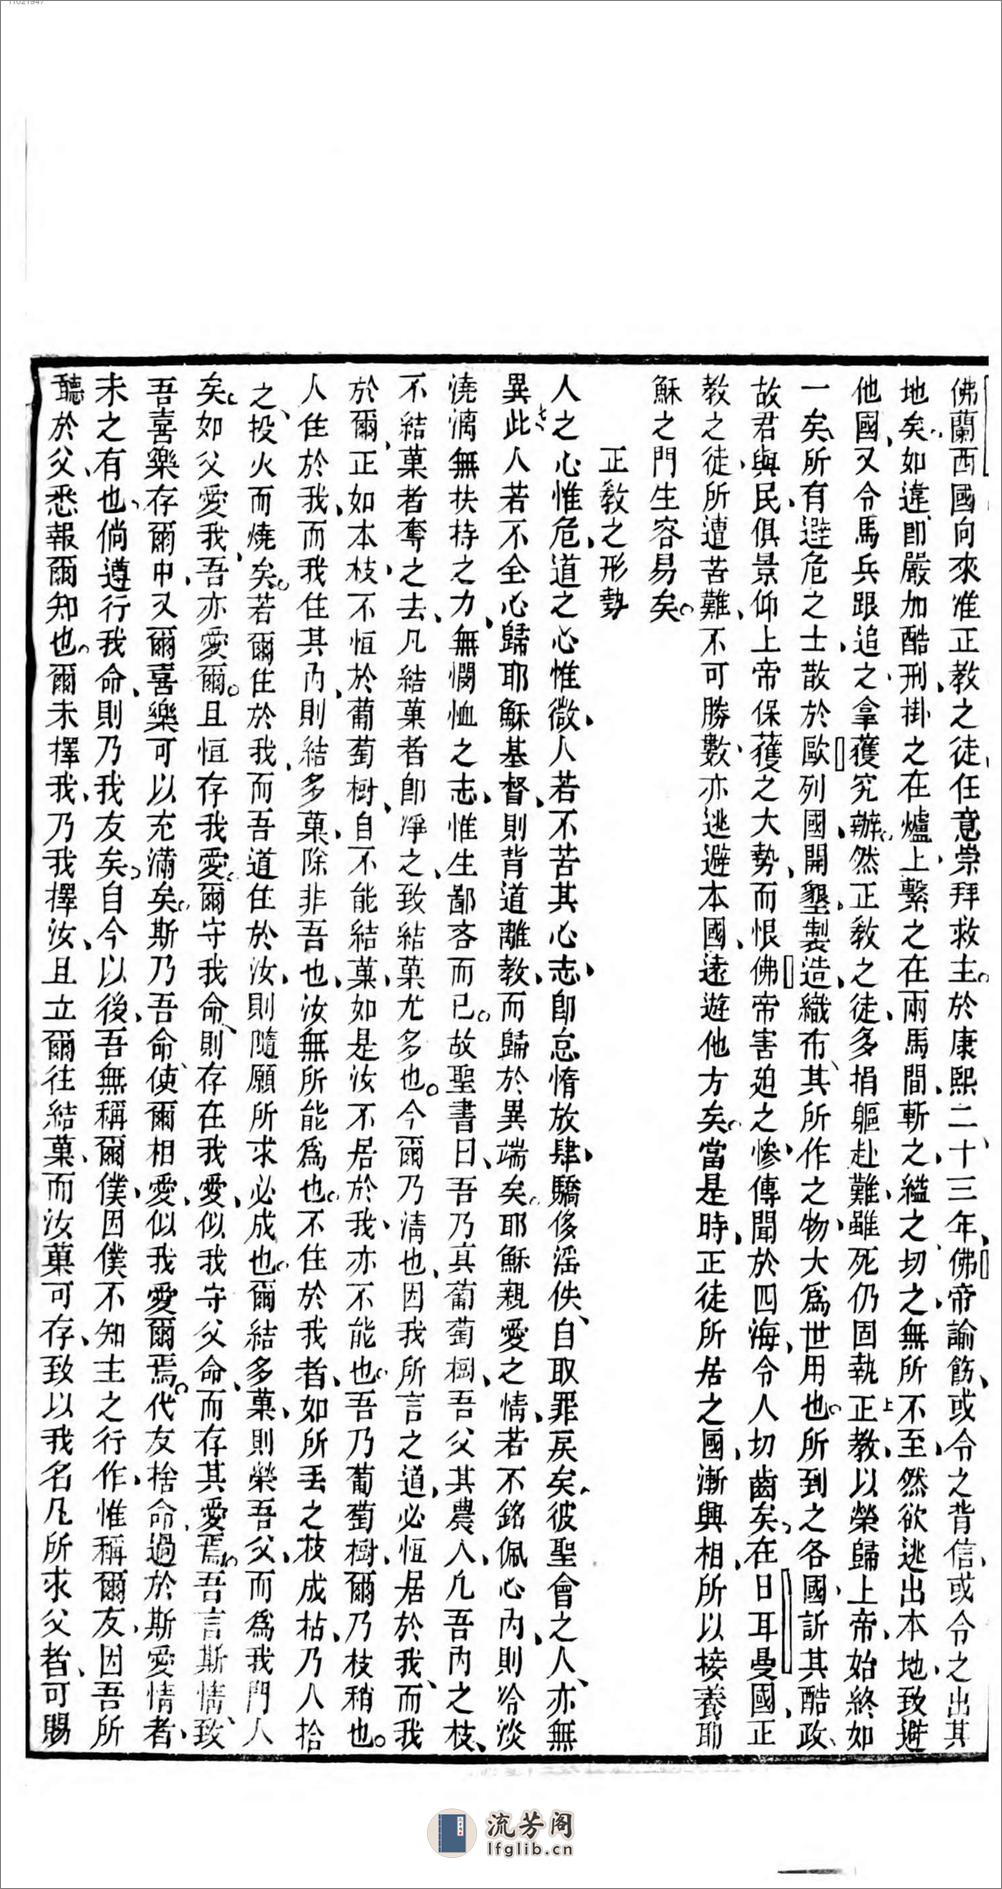 11021947
佛蘭西國向來准正教之徒任意崇拜救主。於康熙二十三年、佛帝諭飭、或令之背信、或令之出其
地矣、如違、即嚴加酷刑、掛之在爐上、繫之在兩馬間、斬之、縊之、切之、無所不至、然欲逃出本地、致避
他國、又令馬兵跟追之、拿獲究辦、然正教之徒、多捐軀赴難、雖死仍固執正教、以榮歸上帝、始終如
一矣、所有避危之士、散於歐列國、開墾製造織布、其所作之物、大為世用也、所到之各國、訴其酷政、
故君與民、俱景仰上帝保護之大勢、而恨佛帝害迫之慘、傳聞於四海、令人切齒矣、在日耳曼國正
教之徒、所遭苦難、不可勝數、亦逃避本國、遠遊他方矣。當是時、正徒所居之國漸興、相所以接養耶
穌之門生容易矣。
正教之形勢
人之心惟危、道之心惟微、人若不苦其心志、即怠惰放肆、驕侈淫佚、自取罪戾矣、彼聖會之人、亦無
異此、人若不全心歸耶穌基督、則背道離教、而歸於異端矣、耶穌親愛之情、若不銘佩心內、則冷淡
澆漓、無扶持之力、無憫恤之志、惟生鄙吝而已。故聖書曰、吾乃真葡萄樹、吾父其農人、凡吾內之枝、
不結菓者、奪之去、凡結菓者、即淨之、致結菓尤多也。今爾乃清也、因我所言之道、必恆居於我、而我
於爾、正如本枝、不恆於葡萄樹、自不能結菓、如是汝不居於我、亦不能也。吾乃葡萄樹、爾乃枝稍也。
人住於我、而我住其內、則結多菓、除非吾也、汝無所能為也。不住於我者、如所丟之枝成枯、乃人拾
之、投火而燒矣。若爾住於我、而吾道住於汝、則隨願所求必成也。爾結多菓、則榮吾父、而為我門人
矣、如父愛我、吾亦愛爾。且恆存我愛、爾守我命、則存在我愛、似我守父命、而存其愛焉。吾言斯情、致
吾喜樂存爾中、又爾喜樂可以充滿矣。斯乃吾命、使爾相愛、似我愛爾焉。代友捨命、過於斯愛情者、
未之有也、倘遵行我命、則乃我友矣、自今以後、吾無稱爾僕、因僕不知主之行作、惟稱爾友、因吾所
聽於父、悉報爾知也。爾未擇我、乃我擇汝、且立爾往結菓、而汝菓可存、致以我名、凡所求父者、可賜
流芳阁
lfglib.cn